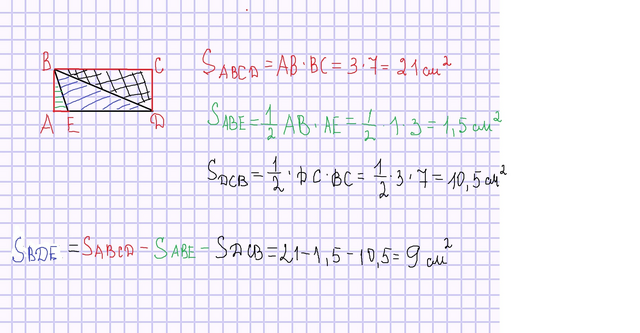 B C
A E D
S_ABCD = AB · BC = 3 · 7 = 21 см²
S_ABE = 1/2 AB · AE = 1/2 · 1 · 3 = 1,5 см²
S_DCB = 1/2 · DC · BC = 1/2 · 3 · 7 = 10,5 см²
S_BDE = S_ABCD - S_ABE - S_DCB = 21 - 1,5 - 10,5 = 9 см²